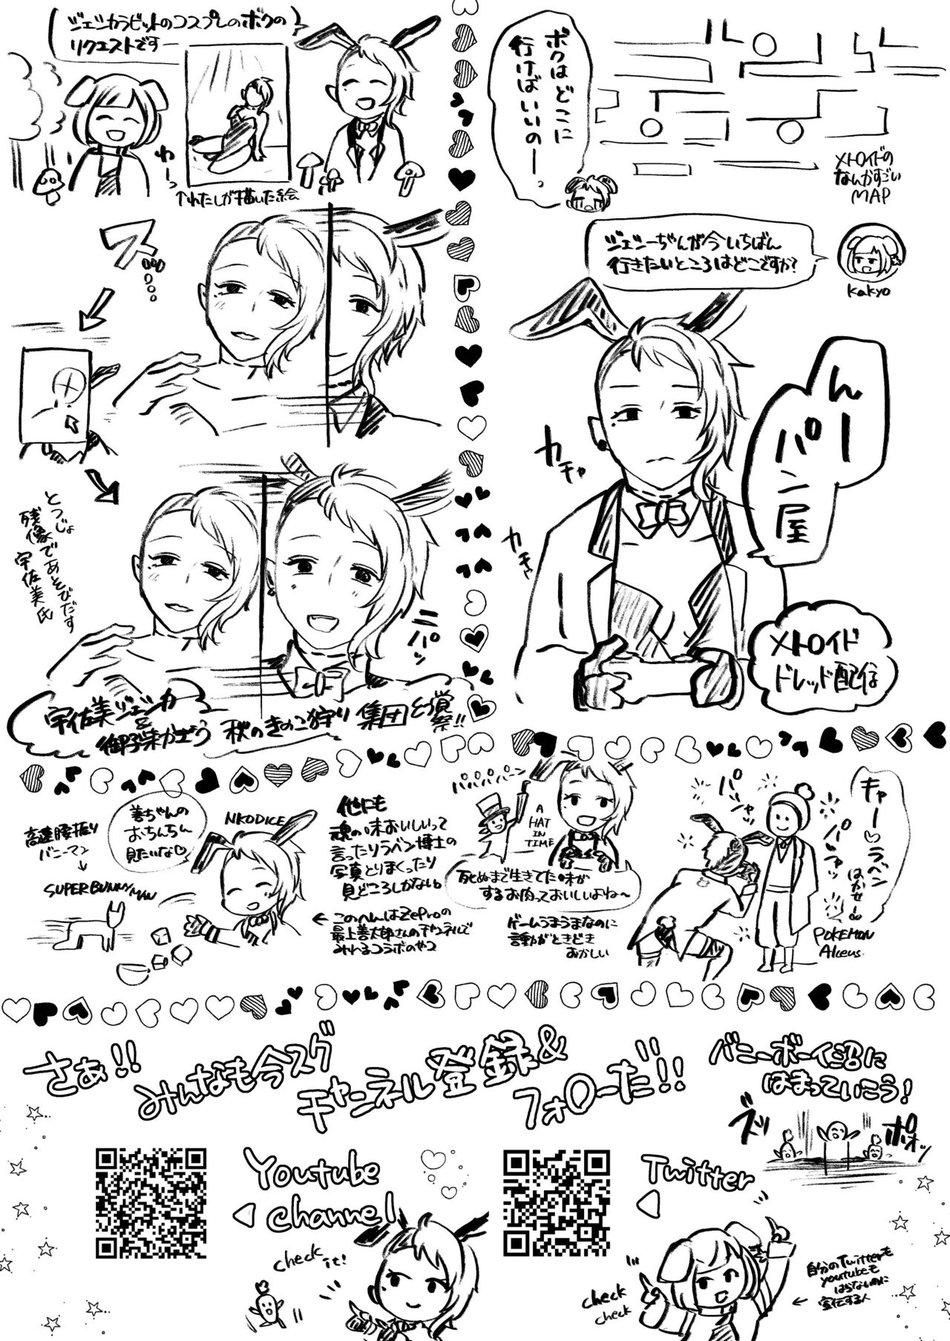 ジェシカラビットのコスプレのボクの
リクエストですー
わーっ
↑わたしが描いた絵
ス…
とつじょ
残像であそびだす
宇佐美氏
ニパッ
宇佐美ジェシカ
&
秋のきのこ狩り 集団幻覚祭!!
ボクはどこに
行けばいいのー
メトロイドの
なんかすごい
MAP
ジェシーぢんが今いちばん
行きたいところはどこですか?
kakyo
んー
パン屋
カチャ
カチャ
メトロイド
ドレッド配信
高速腰振り
バニーマン
↓
SUPER BUNNY MAN
巻ちゃんの
おちんちん
見たいな♡
NKODICE
他にも
魂の味おいしいって
言ったりラベン博士の
写真とりまくったり
見どころしかない。
←このへんはZeProの
最上美太郎さんのチャンネルで
みれるコラボのやつ
パパパパーン
A
HAT
IN
TIME
死ぬまで生きてた味が
するお肉っておいしいよね〜
ゲームうまうまなのに
言動がときどき
おかしい
パシャ
パシャッ
キャー♡ラベン
はかせー♡
POKEMON
Alceus
さぁ!!
みんなも今スグ
チャンネル登録&
フォローだ!!
バニーボーイ沼に
はまっていこう!
ズッ
ポオッ
Youtube
◁ channel
check it!
Twitter
◁
check
check
←自分のTwitterも
youtubeも
はらないのに
宣伝する人